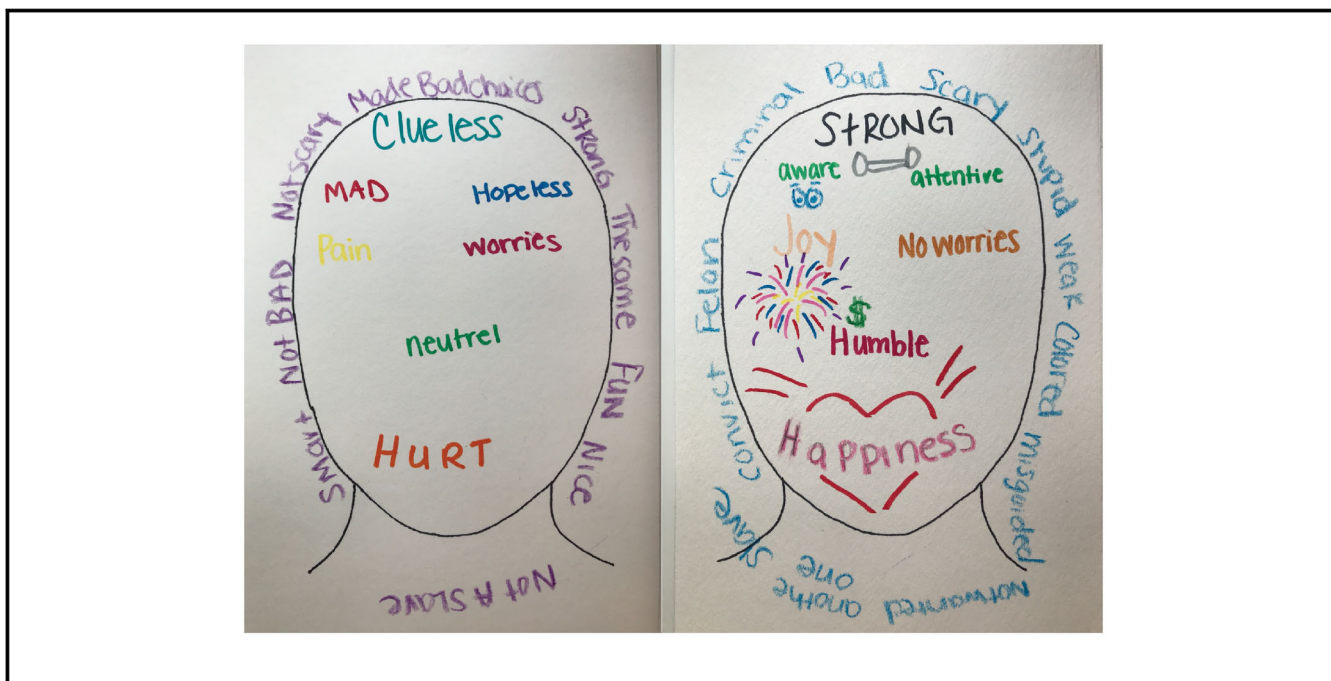 Smart Not BAD Not scary Made Bad choices Strong The same FUN Nice
Not A Slave
Clueless
MAD
Hopeless
Pain
worries
neutrel
HURT
Slave convict Felon Criminal Bad Scary Stupid weak Colored misguided
Not wanted anothe one
STRONG
aware
attentive
Joy
No worries
$
Humble
Happiness